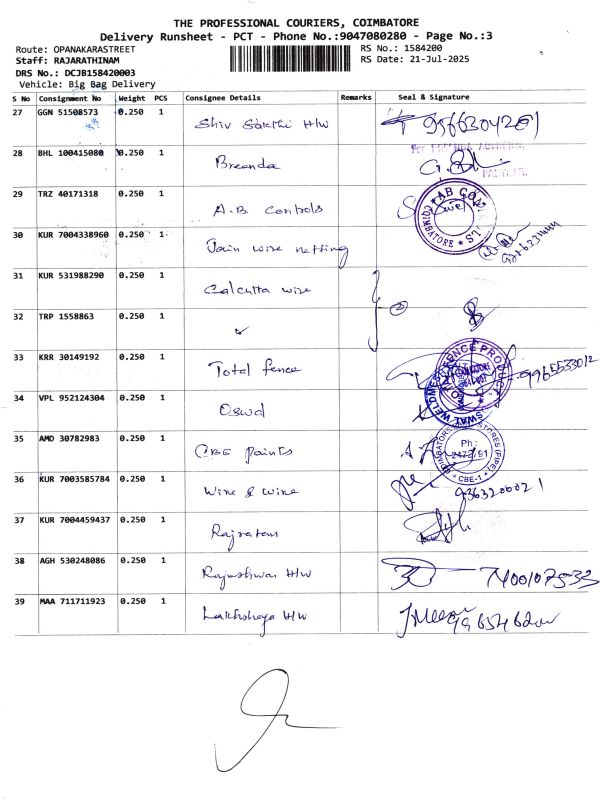 THE PROFESSIONAL COURIERS, COIMBATORE
Delivery Runsheet - PCT - Phone No.:9047080280 - Page No.:3
Route: OPANAKARASTREET RS No.: 1584200
Staff: RAJARATHINAM RS Date: 21-Jul-2025
DRS No.: DCJB158420003
Vehicle: Big Bag Delivery
S No Consignment No Weight PCS Consignee Details Remarks Seal & Signature
27 GGN 51508573 0.250 1 Shiv Sakthi H/W 9566304201
28 BHL 100415080 0.250 1 Breanda
29 TRZ 40171318 0.250 1 A.B. Controls
30 KUR 7004338960 0.250 1 Jain wire netting
31 KUR 531988290 0.250 1 Calcutta wire 2
32 TRP 1558863 0.250 1
33 KRR 30149192 0.250 1 Total fence 9965533012
34 VPL 952124304 0.250 1 Oswal
35 AMD 30782983 0.250 1 CBE Paints
Ph:
CBE-1
36 KUR 7003585784 0.250 1 Wire & Wire 9363206021
37 KUR 7004459437 0.250 1 Rajratan
38 AGH 530248086 0.250 1 Rajeshwari H/W 7400107533
39 MAA 711711923 0.250 1 Lakhshaya H/W